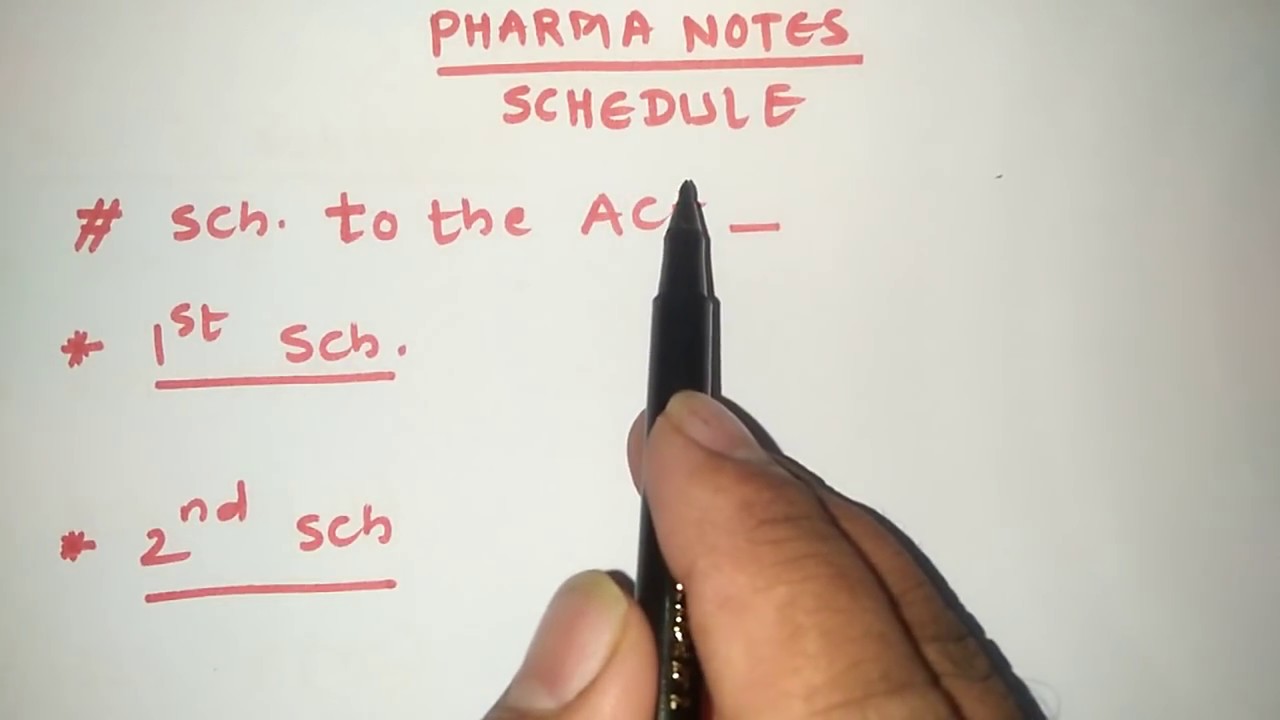 PHARMA NOTES
SCHEDULE
# Sch. to the ACT _
* 1st Sch.
* 2nd sch